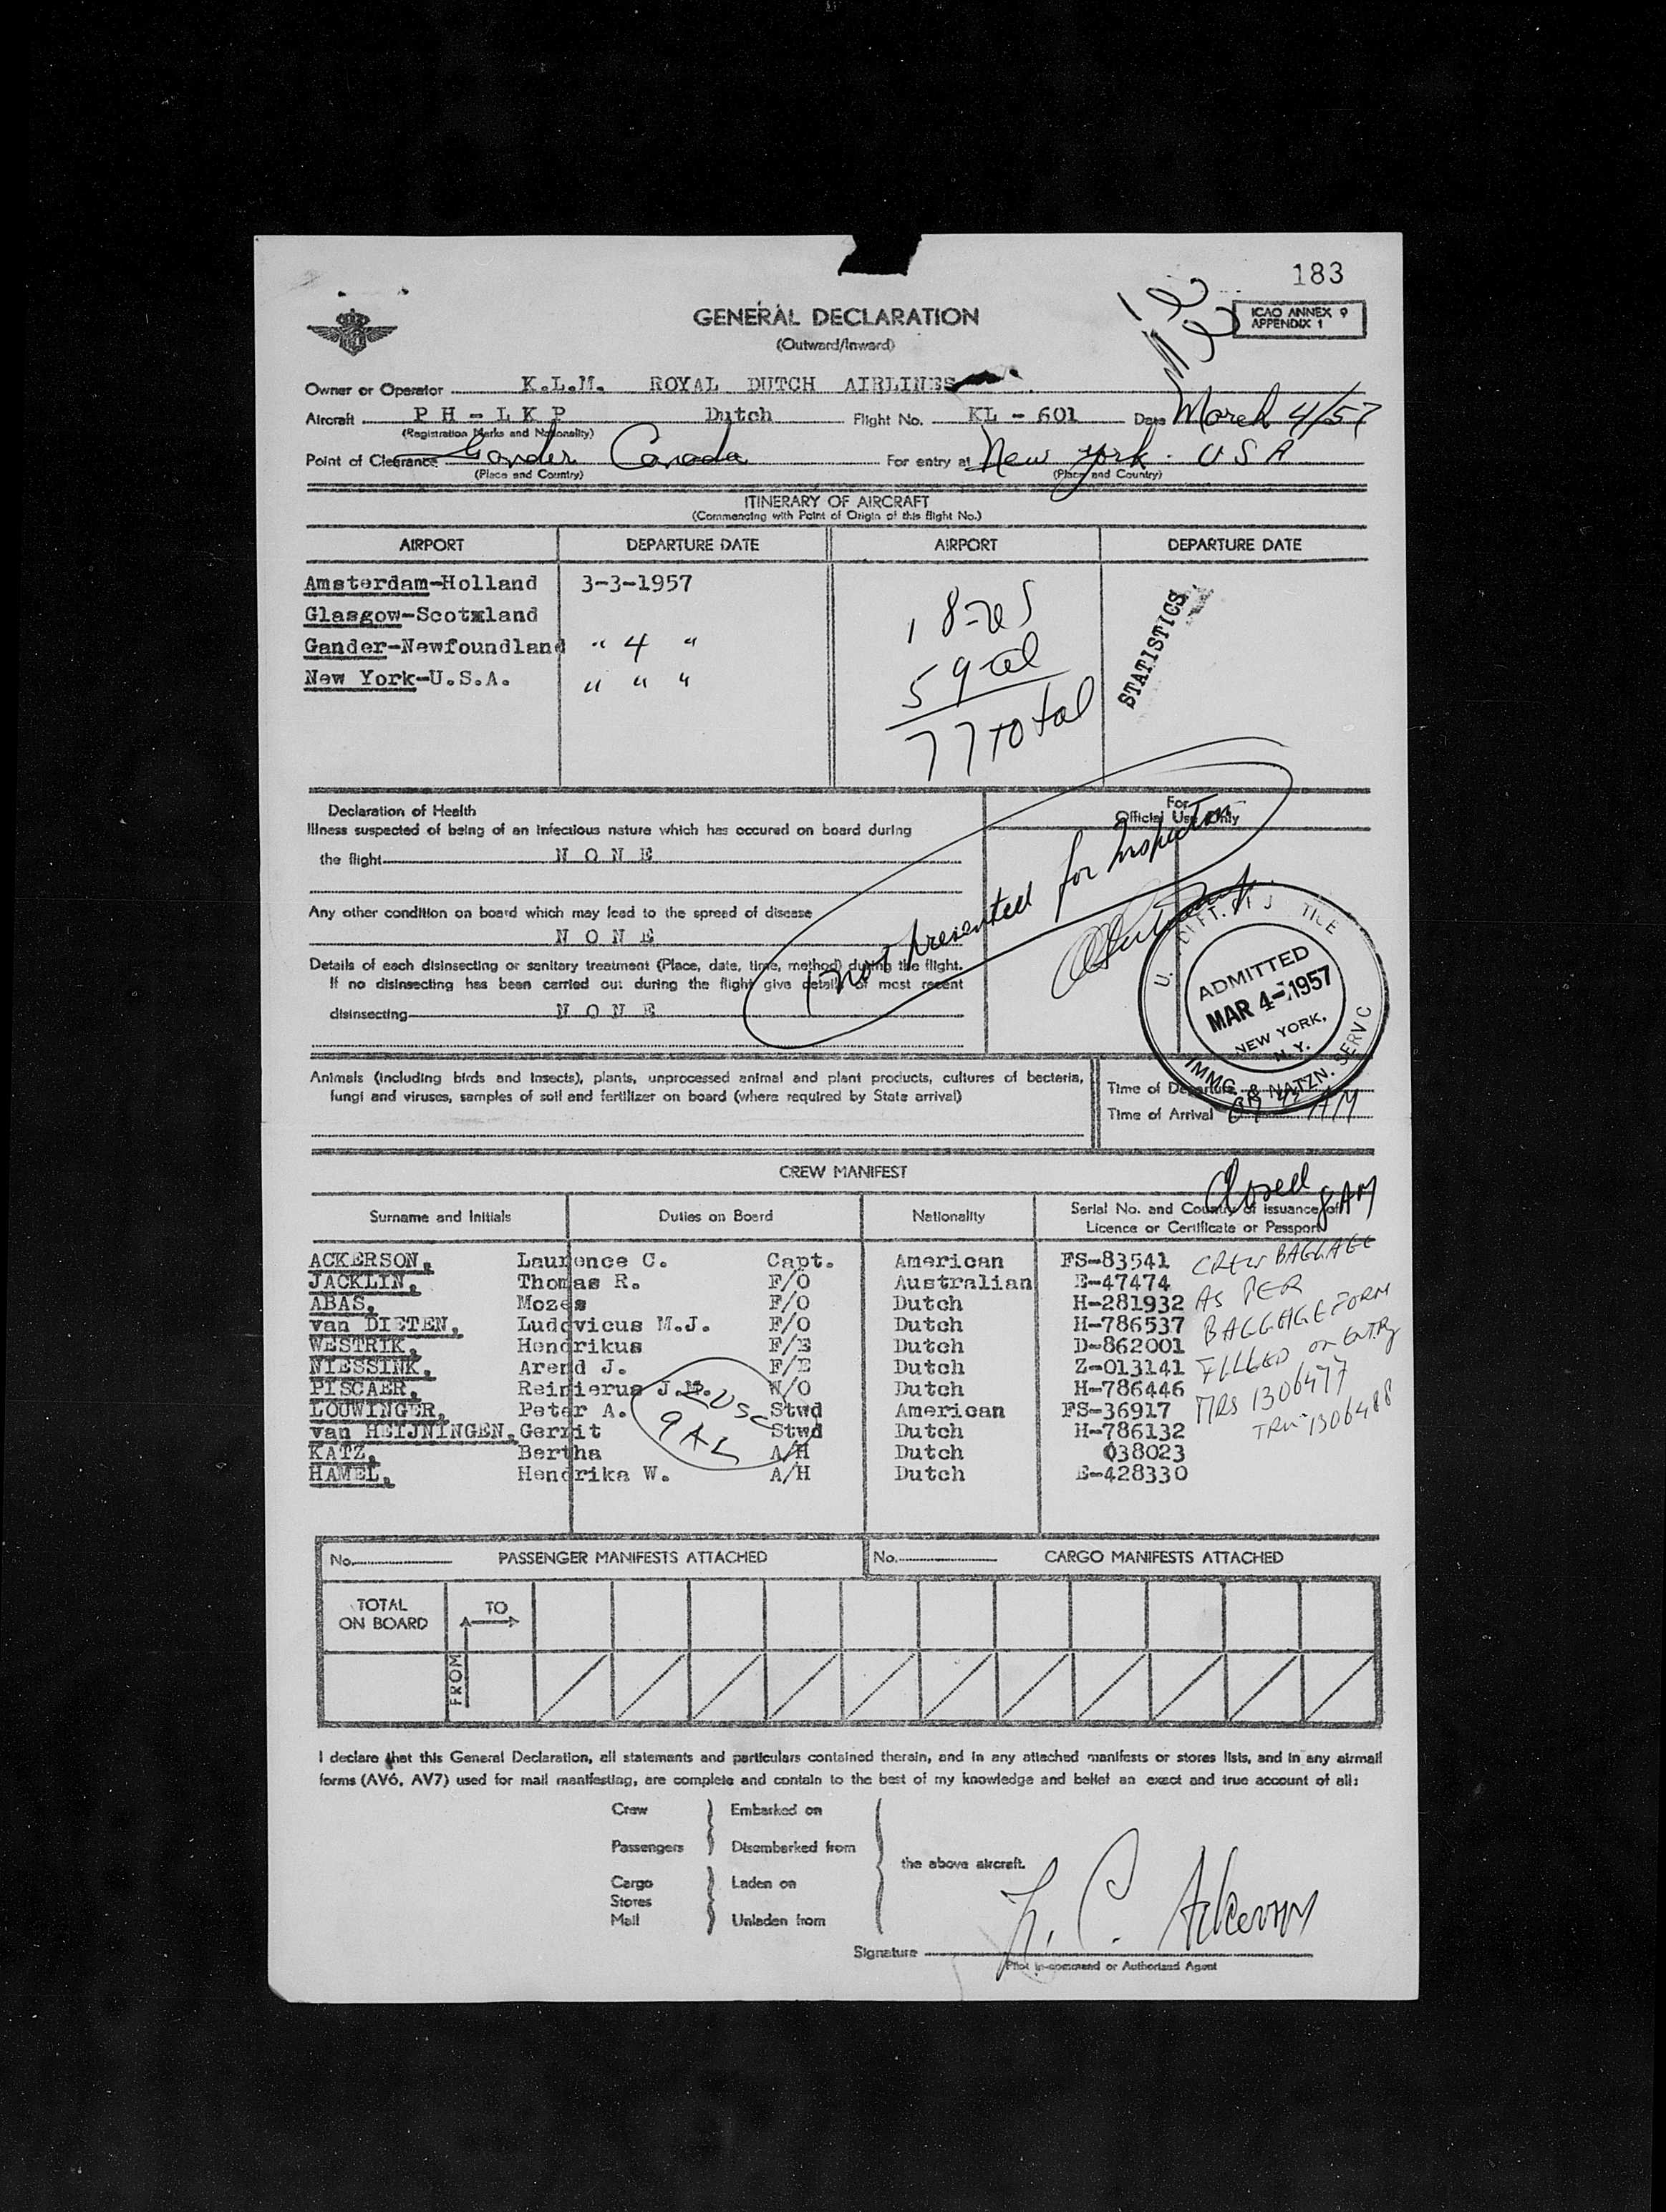 183
GENERAL DECLARATION
(Outward/Inward)
ICAO ANNEX 9
APPENDIX 1
Owner or Operator K.L.M. ROYAL DUTCH AIRLINES
Aircraft P H - L K P Dutch Flight No. KL - 601 Date March 4/57
(Registration Marks and Nationality)
Point of Clearance Gander Canada For entry at New York. USA
(Place and Country) (Place and Country)
ITINERARY OF AIRCRAFT
(Commencing with Point of Origin of this flight No.)
AIRPORT DEPARTURE DATE AIRPORT DEPARTURE DATE
Amsterdam-Holland 3-3-1957
Glasgow-Scotxland
Gander-Newfoundland " 4 "
New York-U.S.A. " " "
18
59
77 total
STATISTICS
Declaration of Health
Illness suspected of being of an infectious nature which has occured on board during
the flight N O N E
Any other condition on board which may lead to the spread of disease
N O N E
Details of each disinsecting or sanitary treatment (Place, date, time, method) during the flight.
If no disinsecting has been carried out during the flight give details of most recent
disinsecting N O N E
For
Official Use Only
not presented for Inspection
U. DEPT. OF JUSTICE
ADMITTED
MAR 4-1957
NEW YORK,
N.Y.
IMMG. & NATZN. SERVC
Animals (including birds and insects), plants, unprocessed animal and plant products, cultures of bacteria,
fungi and viruses, samples of soil and fertilizer on board (where required by State arrival)
Time of Departure
Time of Arrival AM
CREW MANIFEST
Closed 8AM
Surname and Initials Duties on Board Nationality Serial No. and Country of issuance of
Licence or Certificate or Passport
ACKERSON, Laurence C. Capt. American FS-83541
JACKLIN, Thomas R. F/O Australian E-47474
ABAS, Mozes F/O Dutch H-281932
van DIETEN, Ludovicus M.J. F/O Dutch H-786537
WESTRIK, Hendrikus F/E Dutch D-862001
NIESSINK, Arend J. F/E Dutch Z-013141
PISCAER, Reinierus J.M. W/O Dutch H-786446
LOUWINGER, Peter A. Stwd American FS-36917
van HEIJNINGEN, Gerrit Stwd Dutch H-786132
KATZ, Bertha A/H Dutch 038023
HAMEL, Hendrika W. A/H Dutch E-428330
2 USC
9 AL
CREW BAGGAGE
AS PER
BAGGAGE FORM
FILLED on ENTRY
No. PASSENGER MANIFESTS ATTACHED No. CARGO MANIFESTS ATTACHED
TOTAL
ON BOARD
TO
FROM
I declare that this General Declaration, all statements and particulars contained therein, and in any attached manifests or stores lists, and in any airmail
forms (AV6, AV7) used for mail manifesting, are complete and contain to the best of my knowledge and belief an exact and true account of all:
Crew Embarked on
Passengers Disembarked from
the above aircraft.
Cargo Laden on
Stores
Mail Unladen from
L. C. Ackerson
Signature
Pilot in-command or Authorized Agent